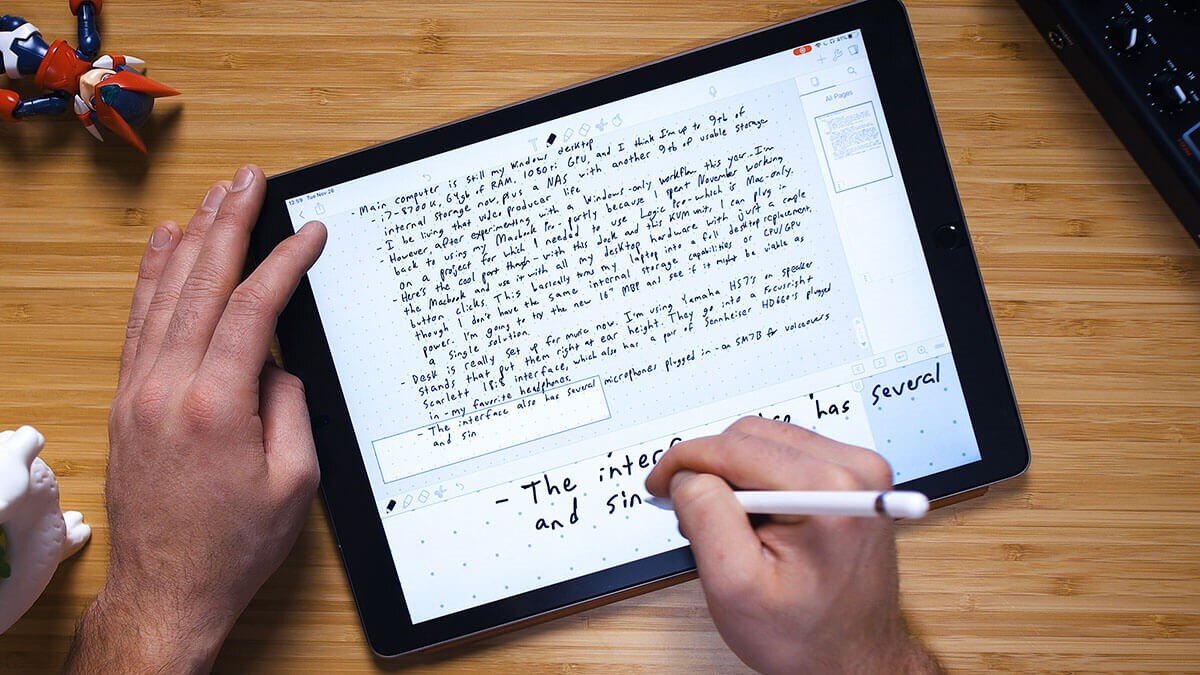 12:59 Tue Nov 26
41%
All Pages
- Main computer is still my Windows desktop
- i7-8700K, 64gb of RAM, 1080ti GPU, and I think I'm up to 9tb of
internal storage now, plus a NAS with another 9tb of usable storage
- I be living that video producer life
- However, after experimenting with a Windows-only workflow this year... I'm
back to using my Macbook Pro - partly because I spent November working
on a project for which I needed to use Logic Pro - which is Mac-only.
- Here's the cool part though - with this dock and this KVM unit, I can plug in
the Macbook and use it with all my desktop hardware with just a couple
button clicks. This basically turns my laptop into a full desktop replacement,
though I don't have the same internal storage capabilities or CPU/GPU
power. I'm going to try the new 16" MBP and see if it might be viable as
a single solution.
- Desk is really set up for music now. I'm using Yamaha HS7's on speaker
stands that put them right at ear height. They go into a Focusright
Scarlett 18i8 interface, which also has a pair of Sennheiser HD660-S plugged
in - my favorite headphones.
- The interface also has several microphones plugged in - an SM7B for voiceovers
and sin
- The interf has several
and sin